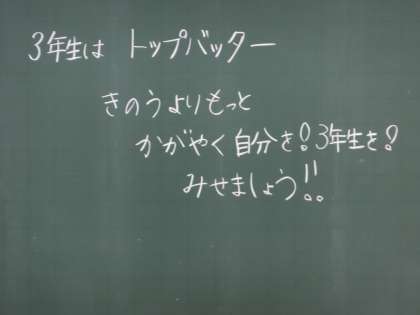 3年生は トップバッター
きのうよりもっと
かがやく自分を!3年生を!
みせましょう!!